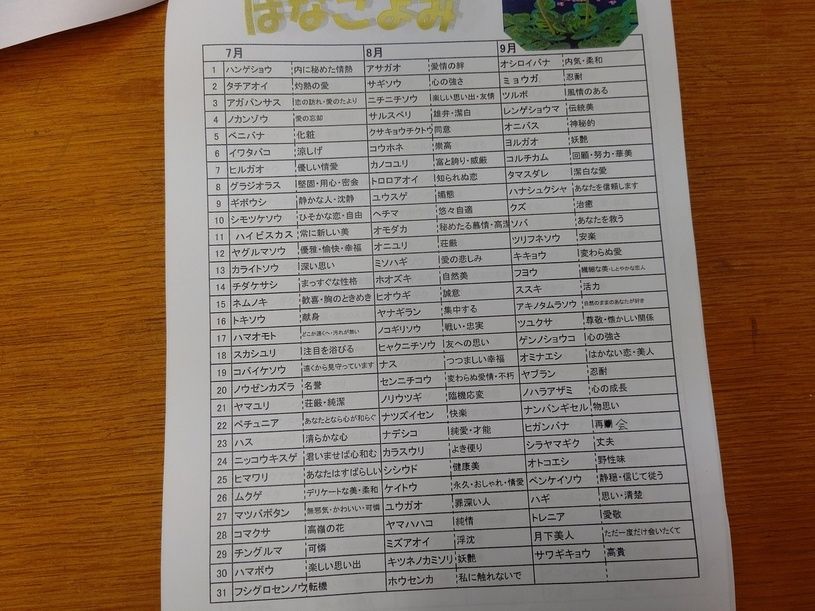 はなごよみ
7月 8月 9月
1 ハンゲショウ 内に秘めた情熱 アサガオ 愛情の絆 オシロイバナ 内気・柔和
2 タチアオイ 灼熱の愛 サギソウ 心の強さ ミョウガ 忍耐
3 アガパンサス 恋の訪れ・愛のたより ニチニチソウ 楽しい思い出・友情 ツルボ 風情のある
4 ノカンゾウ 愛の忘却 サルスベリ 雄弁・潔白 レンゲショウマ 伝統美
5 ベニバナ 化粧 クサキョウチクトウ 同意 オニバス 神秘的
6 イワタバコ 涼しげ コウホネ 崇高 ヨルガオ 妖艶
7 ヒルガオ 優しい情愛 カノコユリ 富と誇り・威厳 コルチカム 回顧・努力・華美
8 グラジオラス 堅固・用心・密会 トロロアオイ 知られぬ恋 タマスダレ 潔白な愛
9 ギボウシ 静かな人・沈静 ユウスゲ 媚態 ハナシュクシャ あなたを信頼します
10 シモツケソウ ひそかな恋・自由 ヘチマ 悠々自適 クズ 治癒
11 ハイビスカス 常に新しい美 オモダカ 秘めたる慕情・高潔 ソバ あなたを救う
12 ヤグルマソウ 優雅・愉快・幸福 オニユリ 荘厳 ツリフネソウ 安楽
13 カライトソウ 深い思い ミソハギ 愛の悲しみ キキョウ 変わらぬ愛
14 チダケサシ まっすぐな性格 ホオズキ 自然美 フヨウ 繊細な美・しとやかな恋人
15 ネムノキ 歓喜・胸のときめき ヒオウギ 誠意 ススキ 活力
16 トキソウ 献身 ヤナギラン 集中する アキノタムラソウ 自然のままのあなたが好き
17 ハマオモト どこか遠くへ・汚れが無い ノコギリソウ 戦い・忠実 ツユクサ 尊敬・懐かしい関係
18 スカシユリ 注目を浴びる ヒャクニチソウ 友への思い ゲンノショウコ 心の強さ
19 コバイケソウ 遠くから見守っています ナス つつましい幸福 オミナエシ はかない恋・美人
20 ノウゼンカズラ 名誉 センニチコウ 変わらぬ愛情・不朽 ヤブラン 忍耐
21 ヤマユリ 荘厳・純潔 ノリウツギ 臨機応変 ノハラアザミ 心の成長
22 ペチュニア あなたとなら心が和らぐ ナツズイセン 快楽 ナンバンギセル 物思い
23 ハス 清らかな心 ナデシコ 純愛・才能 ヒガンバナ 再会
24 ニッコウキスゲ 君いませば心和む カラスウリ よき便り シラヤマギク 丈夫
25 ヒマワリ あなたはすばらしい シシウド 健康美 オトコエシ 野性味
26 ムクゲ デリケートな美・柔和 ケイトウ 永久・おしゃれ・情愛 ベンケイソウ 静穏・信じて従う
27 マツバボタン 無邪気・かわいい・可憐 ユウガオ 罪深い人 ハギ 思い・清楚
28 コマクサ 高嶺の花 ヤマハハコ 純情 トレニア 愛敬
29 チングルマ 可憐 ミズアオイ 浮沈 月下美人 ただ一度だけ会いたくて
30 ハマボウ 楽しい思い出 キツネノカミソリ 妖艶 サワギキョウ 高貴
31 フシグロセンノウ 転機 ホウセンカ 私に触れないで